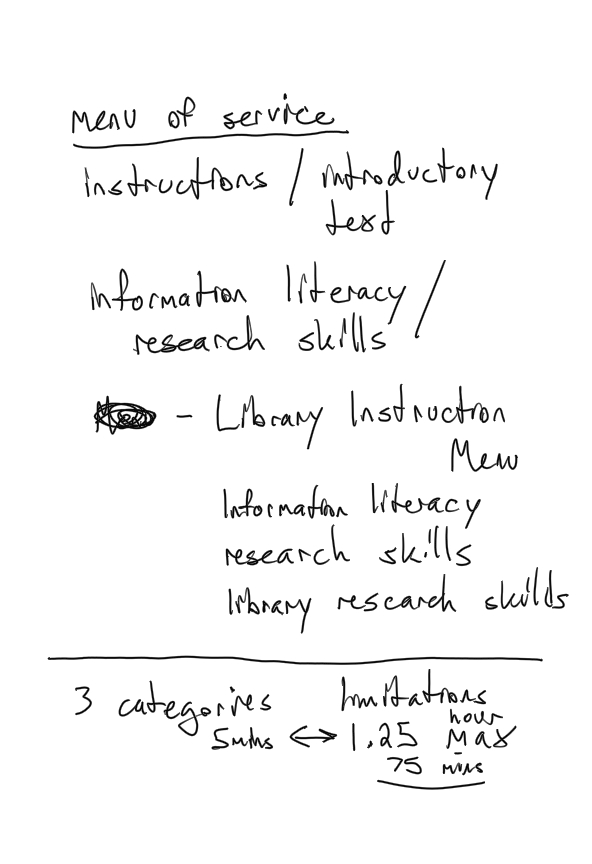 Menu of service
instructions / introductory
text
information literacy /
research skills
- Library Instruction
Menu
Information literacy
research skills
library research skilds
3 categories limitations
hour
5 mins ↔ 1.25 Max
75 mins